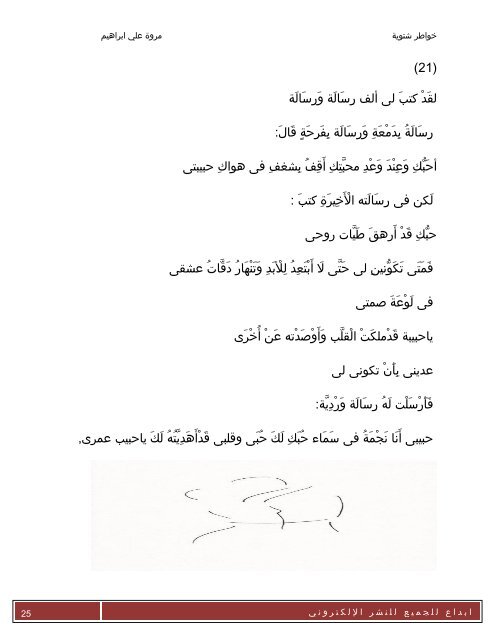 خواطر شتوية
مروة علي ابراهيم
(21)
لقَدْ كتبَ لى ألف رسَالَة وَرسَالَة
رسَالَةُ بِدَمْعَةِ وَرسَالَة بِفَرحَةٍ قَالَ:
أحَبُّكِ وَعِنْدَ وَعْدِ محبَّتِكِ أَقِفُ بِشغفِ فى هواكِ حبيبتى
لَكن فى رسَالَته الْأَخِيرَةِ كتبَ :
حبُّكِ قَدْ أَرهقَ طَيَّات روحى
فَمَتَى تَكَوُّنين لى حَتَّى لَا أَبْتَعِدُ لِلْأبَدِ وَتَنْهَارُ دَقَّاتُ عشقى
فى لَوْعَةَ صمتى
ياحبيبة قَدْملكَتْ الْقلَّب وَأَوْصَدْته عَنْ أُخْرَى
عدينى بِأَنْ تكونى لى
فَأَرْسَلْت لَهُ رسَالَة وَرْدِيَّة:
حبيبى أَنَا نَجْمَةُ فى سَمَاء حُبَكِ لَكَ حُبَى وقلبى قَدْأَهَدِيَّتُهُ لَكَ ياحبيب عمرى,
ابداع للجميع للنشر الإلكترونى
25